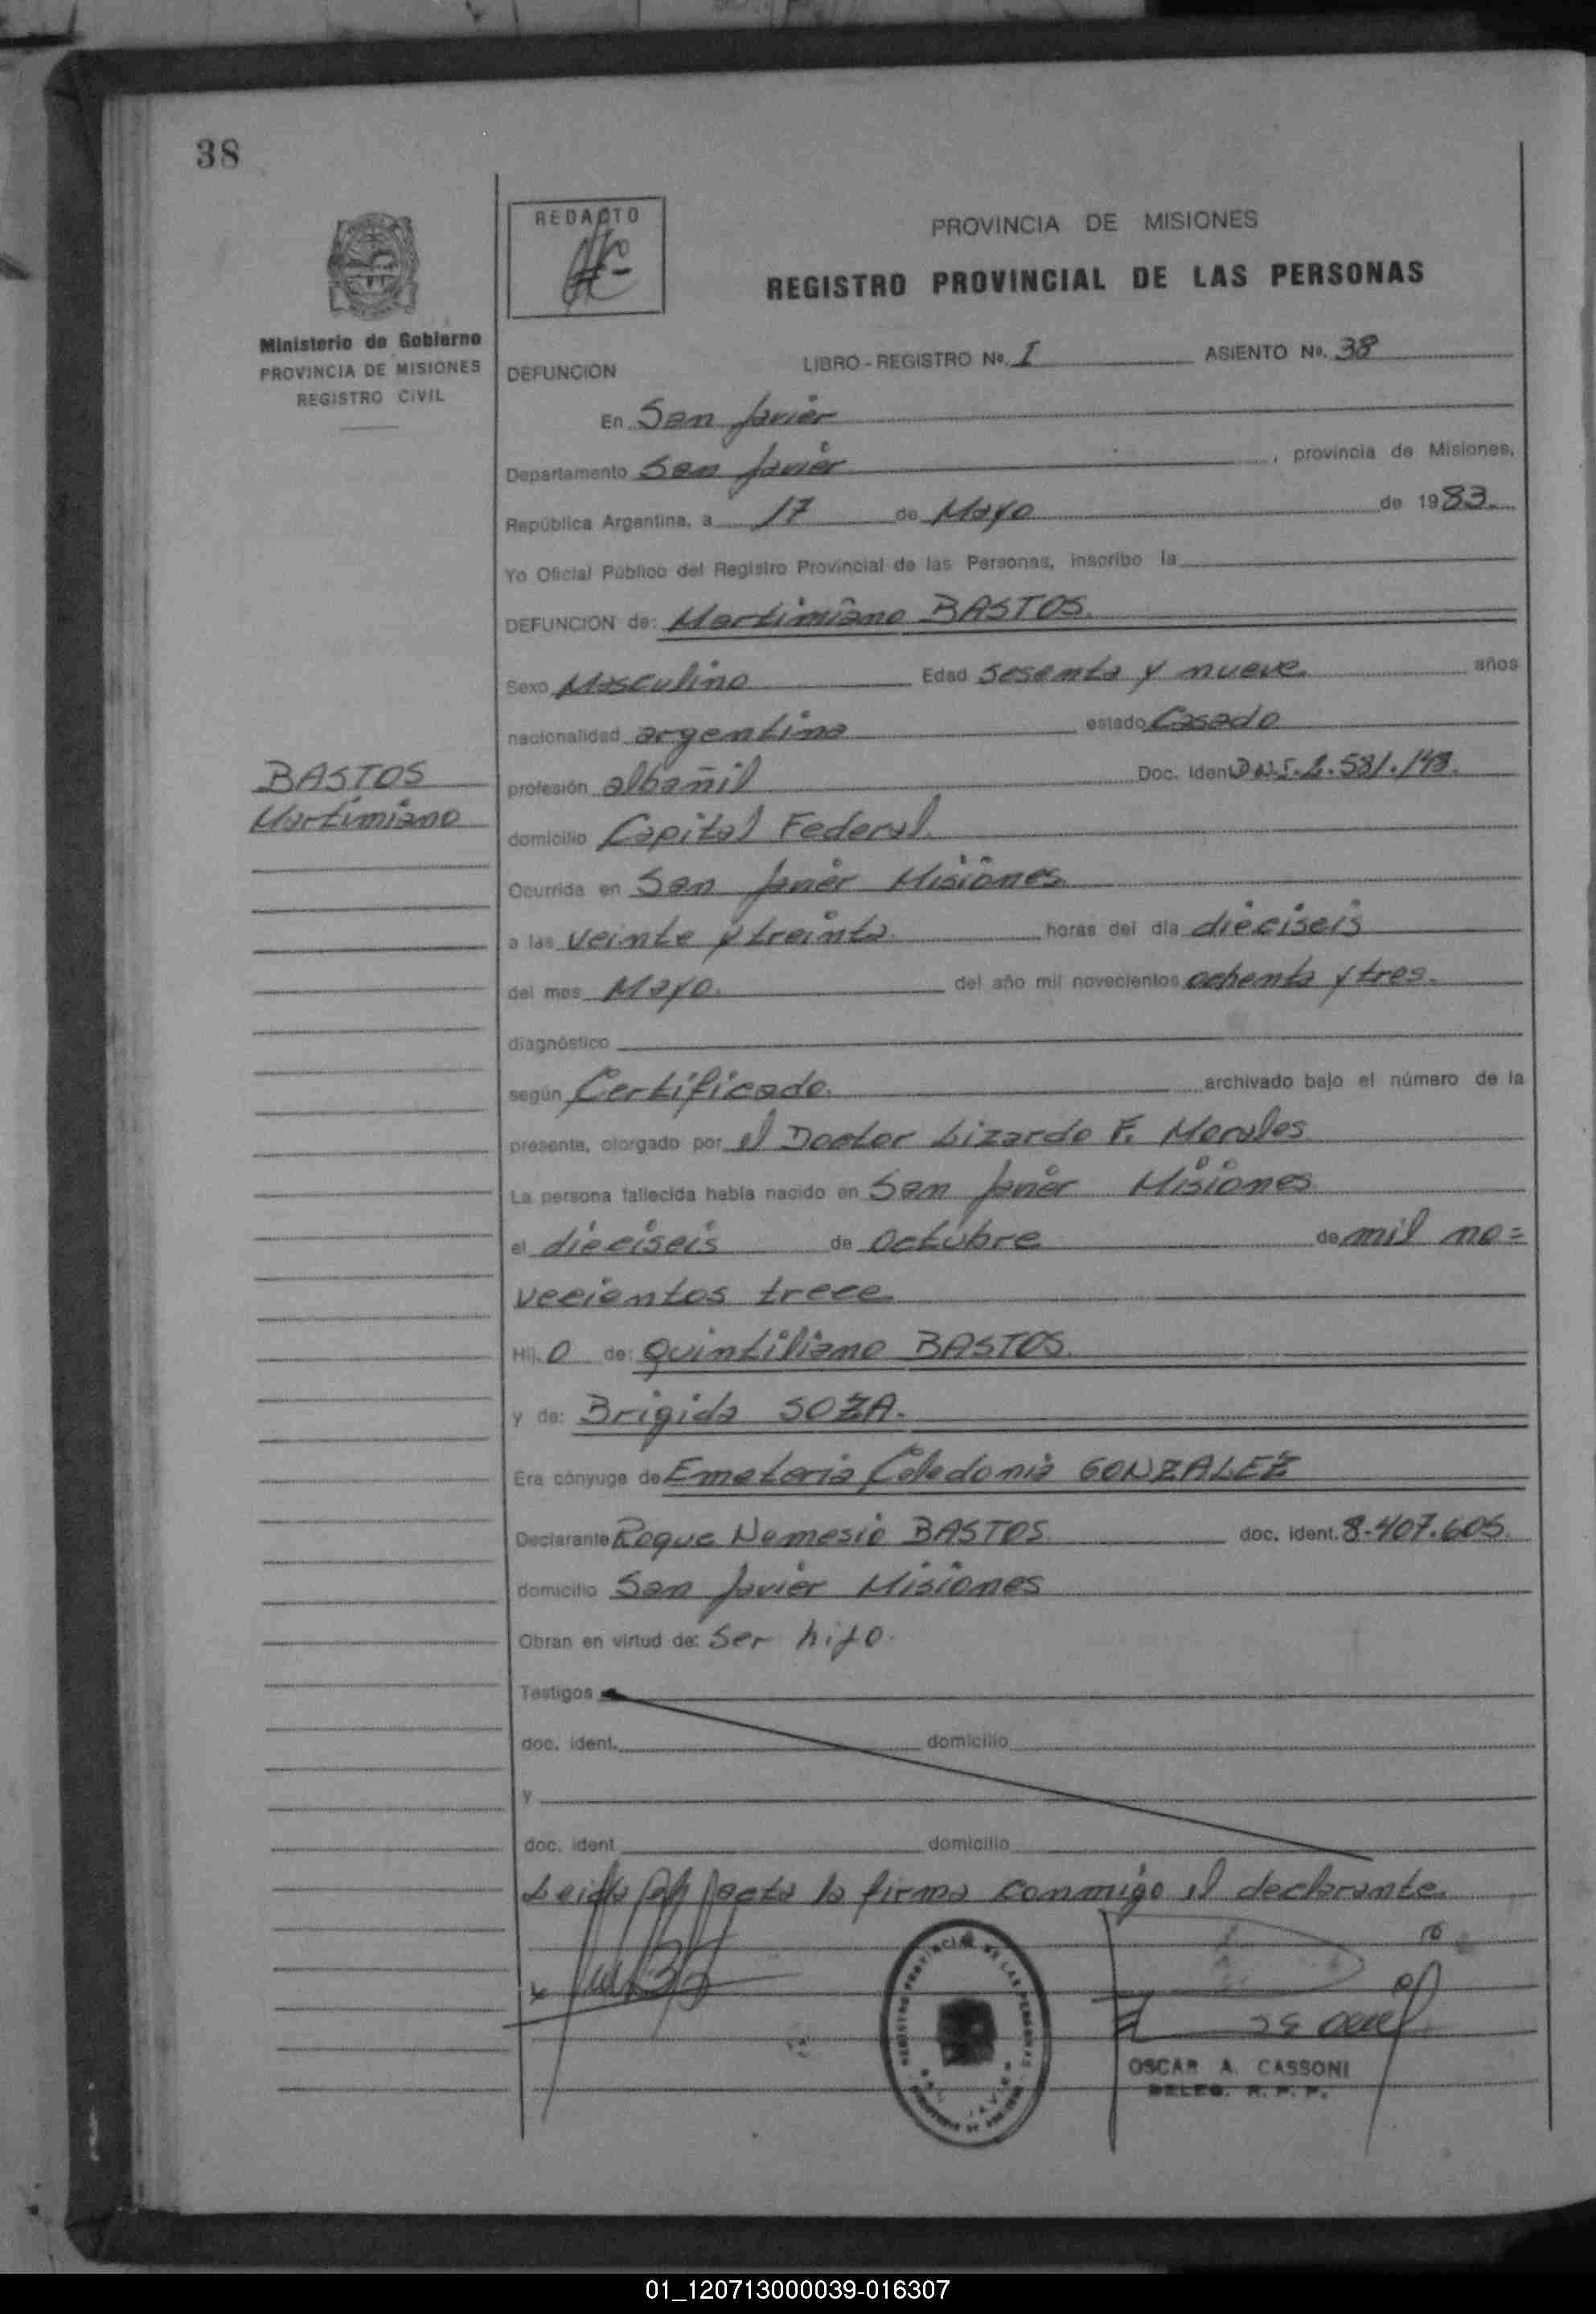 38
REDACTO
PROVINCIA DE MISIONES
REGISTRO PROVINCIAL DE LAS PERSONAS
Ministerio de Gobierno
PROVINCIA DE MISIONES
REGISTRO CIVIL
LIBRO - REGISTRO No. I ASIENTO No. 38
DEFUNCION
En San Javier
Departamento San Javier, provincia de Misiones,
República Argentina, a 17 de Mayo de 1983.
Yo Oficial Público del Registro Provincial de las Personas, inscribo la
DEFUNCION de: Martimiano BASTOS.
Sexo Masculino Edad sesenta y nueve años
nacionalidad argentina estado Casado
BASTOS
Martimiano
profesión albañil Doc. Ident D.N.I. 2.581.143.
domicilio Capital Federal.
Ocurrida en San Javier Misiones
a las veinte y treinta. horas del día dieciseis
del mes Mayo. del año mil novecientos ochenta y tres.
diagnóstico
según Certificado. archivado bajo el número de la
presente, otorgado por el Doctor Lizardo F. Morales
La persona fallecida había nacido en San Javier Misiones
el dieciseis de Octubre de mil no=
vecientos trece
Hij.o de: Quintiliano BASTOS.
y de: Brigida SOZA.
Era cónyuge de Emeteria Celedonia GONZALEZ
Declarante Roque Nemesio BASTOS. doc. ident. 8.407.605
domicilio San Javier Misiones
Obran en virtud de: Ser hijo.
Testigos
doc. ident. domicilio
y
doc. ident domicilio
Leida el acta la firma conmigo el declarante.
REGISTRO PROVINCIAL DE LAS PERSONAS
OSCAR A. CASSONI
DELEG. R. P. P.
01_120713000039-016307